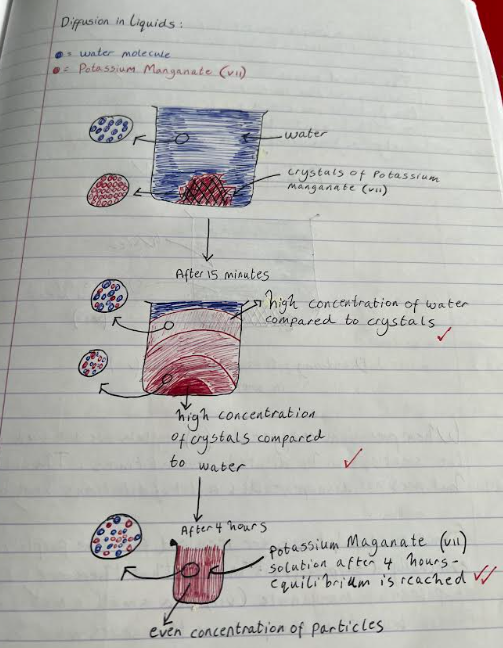 Diffusion in Liquids:
= water molecule
= Potassium Manganate (VII)
water
crystals of Potassium
manganate (VII)
After 15 minutes
high concentration of water
compared to crystals
high concentration
of crystals compared
to water
After 4 hours
Potassium Maganate (VII)
solution after 4 hours-
equilibrium is reached
even concentration of particles